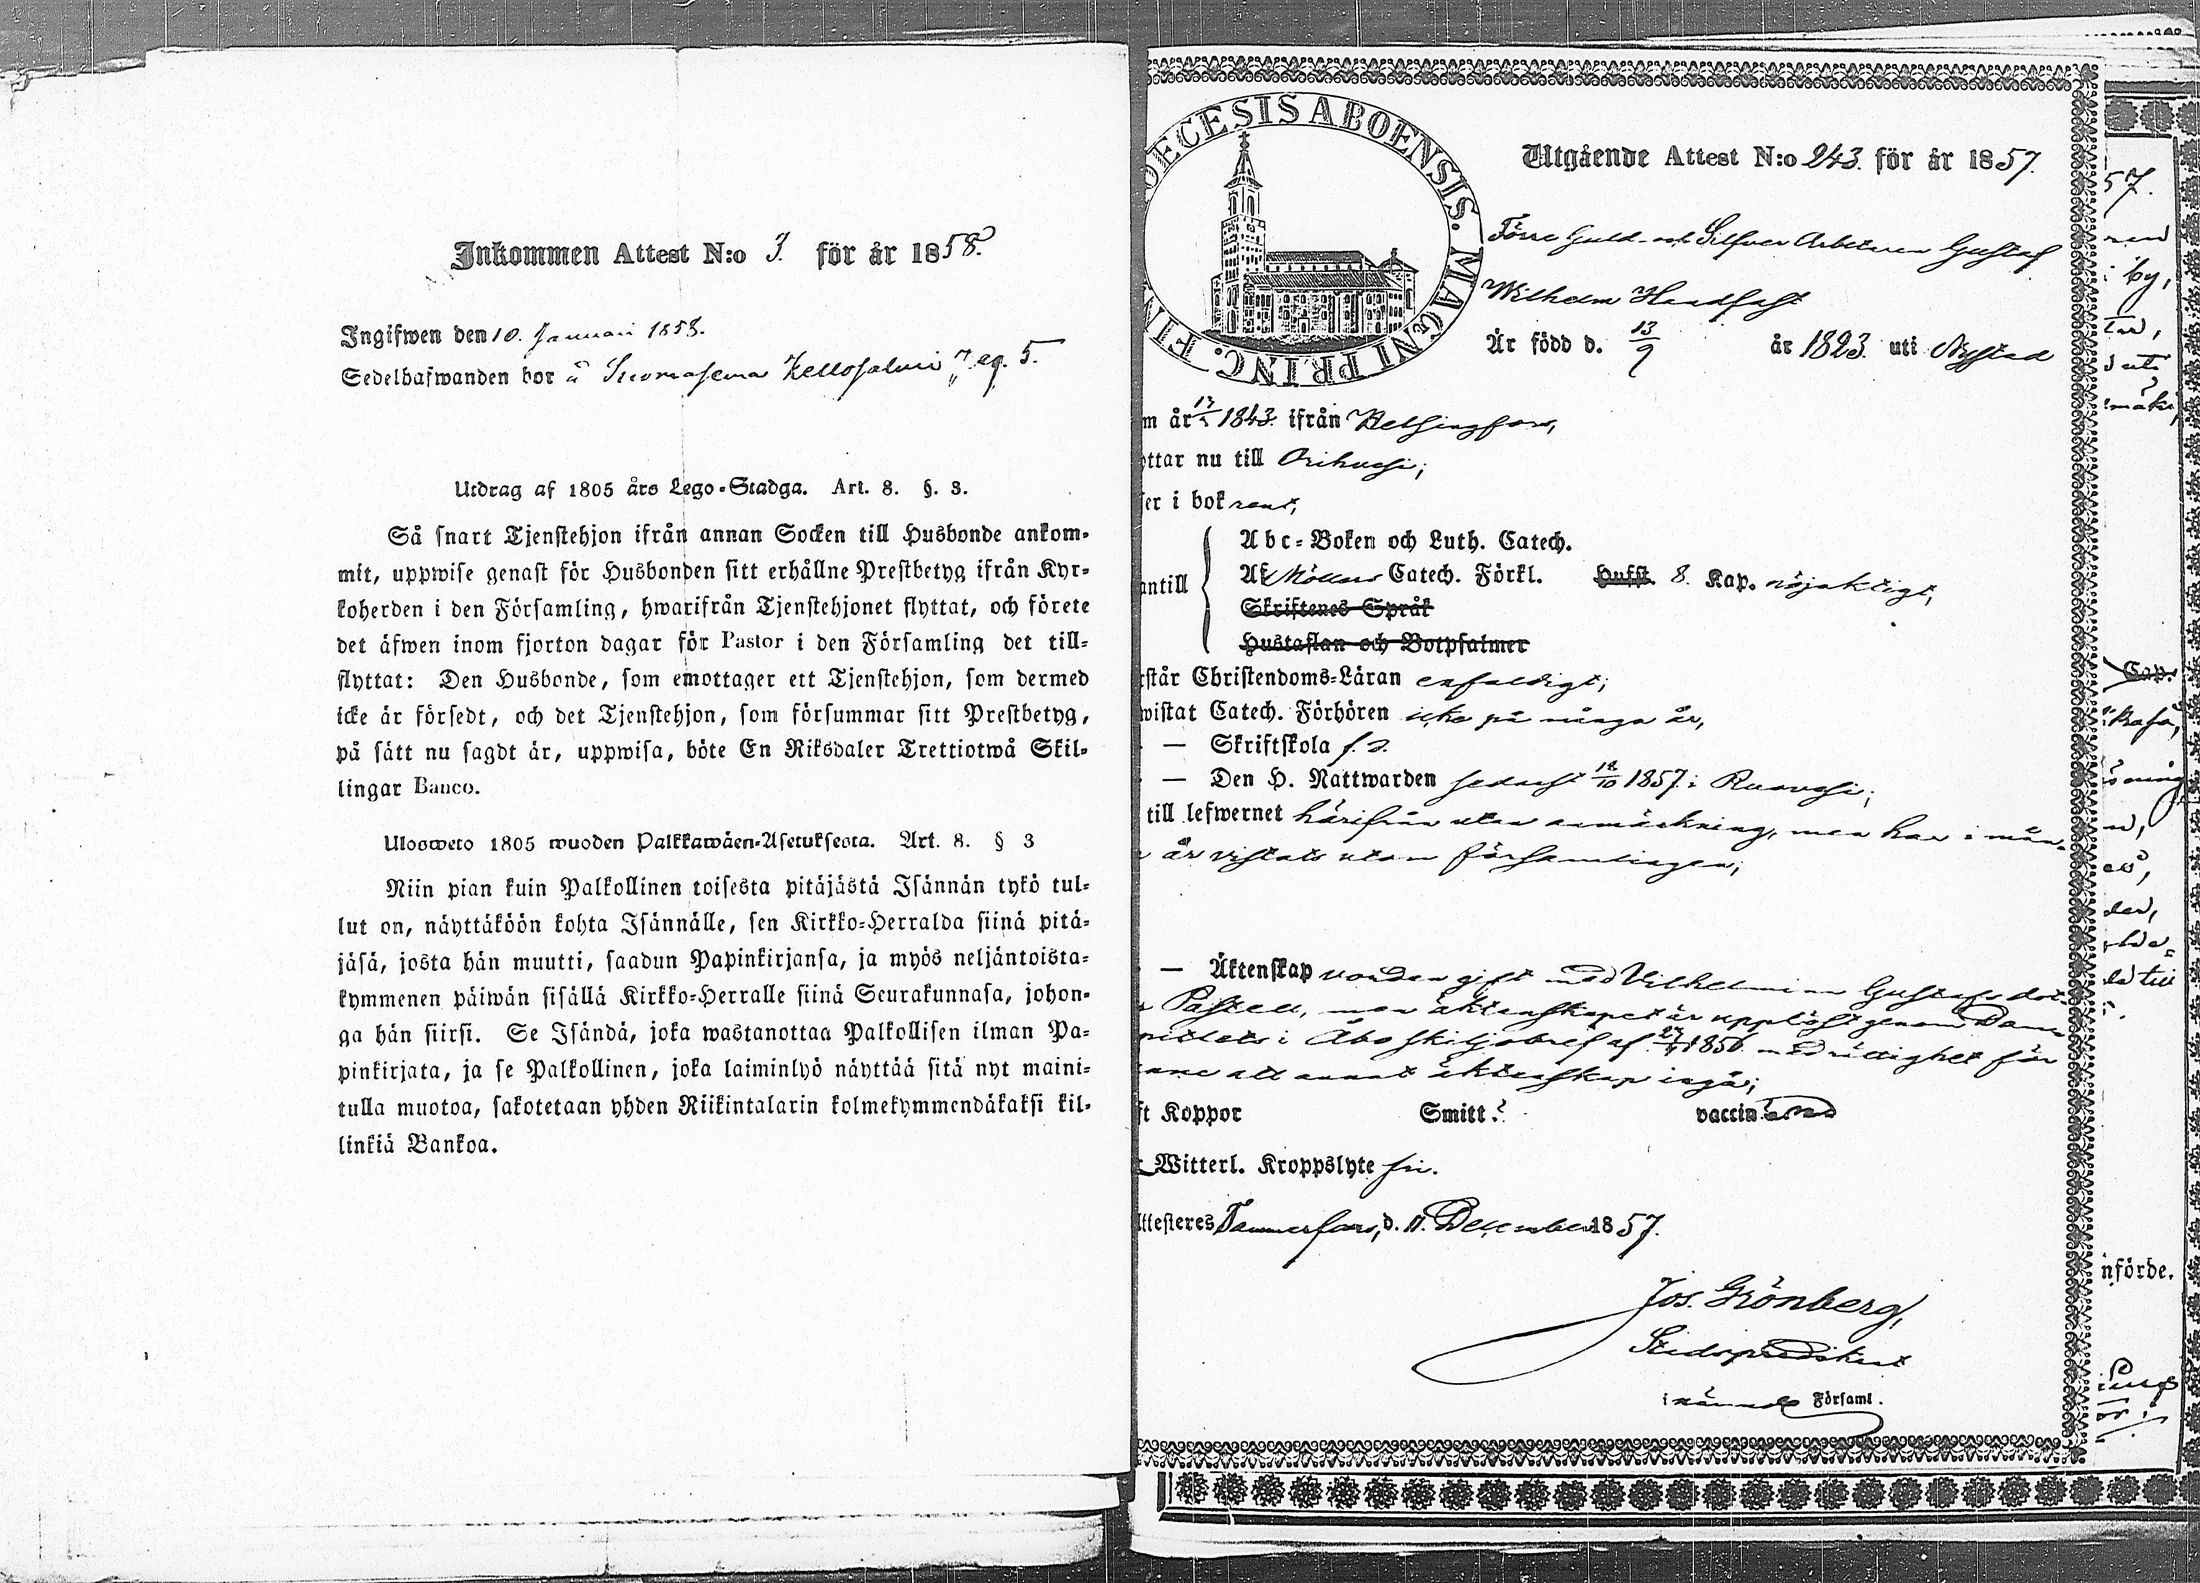 Inkommen Attest N:o 3. för år 1858.
Ingifwen den 10. Januari 1858.
Sedelhafwanden bor å Suomasema Kellosalmi
Utdrag af 1805 års Lego-Stadga. Art. 8. §. 3.
Så snart Tjenstehjon ifrån annan Socken till Husbonde ankom-
mit, uppwise genast för Husbonden sitt erhållne Prestbetyg ifrån Kyr-
koherden i den Församling, hwarifrån Tjenstehjonet flyttat, och förete
det äfwen inom fjorton dagar för Pastor i den Församling det till-
flyttat: Den Husbonde, som emottager ett Tjenstehjon, som dermed
icke är försedt, och det Tjenstehjon, som försummar sitt Prestbetyg,
på sätt nu sagdt är, uppwisa, böte En Riksdaler Trettiotwå Skil-
lingar Banco.
Ulosweto 1805 wuoden Palkkawäen-Asetuksesta. Art. 8. § 3
Niin pian kuin Palkollinen toisesta pitäjästä Isännän tykö tul-
lut on, näyttäköön kohta Isännälle, sen Kirkko-Herralda siinä pitä-
jäsä, josta hän muutti, saadun Papinkirjansa, ja myös neljäntoista-
kymmenen päiwän sisällä Kirkko-Herralle siinä Seurakunnasa, johon-
ga hän siirsi. Se Isändä, joka wastanottaa Palkollisen ilman Pa-
pinkirjata, ja se Palkollinen, joka laiminlyö näyttää sitä nyt maini-
tulla muotoa, sakotetaan yhden Riikintalarin kolmekymmendäkaksi kil-
linkiä Bankoa.
OECESIS ABOENSIS. MAGNI PRINC. FIN
Utgående Attest N:o 243. för år 1857.
Förre Guld- och Silfver Arbetaren Gustaf
Wilhelm Handfast
Är född d. 13/9 år 1823. uti Nystad
m år 1843. ifrån Helsingfors,
ttar nu till Orihvesi;
er i bok rent,
Abc-Boken och Luth. Catech.
antill Af Möllers Catech. Förkl. Hufst. 8. Kap. nöjaktigt,
Skriftenes Språk
Hustaflan och Botpsalmer
står Christendoms-Läran enfaldigt;
wistat Catech. Förhören icke på många år,
— Skriftskola f. d.
— Den H. Nattwarden sednast 18/10 1857. i Ruovesi;
till lefwernet härifrån utan anmärkning, men har i mån-
år vistats utom församlingen;
— Äktenskap varder gift med Vilhelmina Gustafsdot.
Pastell, men äktenskapet är upplöst genom Dom-
pitlets i Åbo skiljobref af 1856. med rättighet för
att annat äktenskap ingå;
ft Koppor Smitt. ? vaccin. end
Witterl. Kroppslyte fri.
ttesteres Tammerfors, d. 11. December 1857.
Jos. Grönberg,
Stadspredikant
i nämnde Församl.
57.
by,
Cap.
nförde.